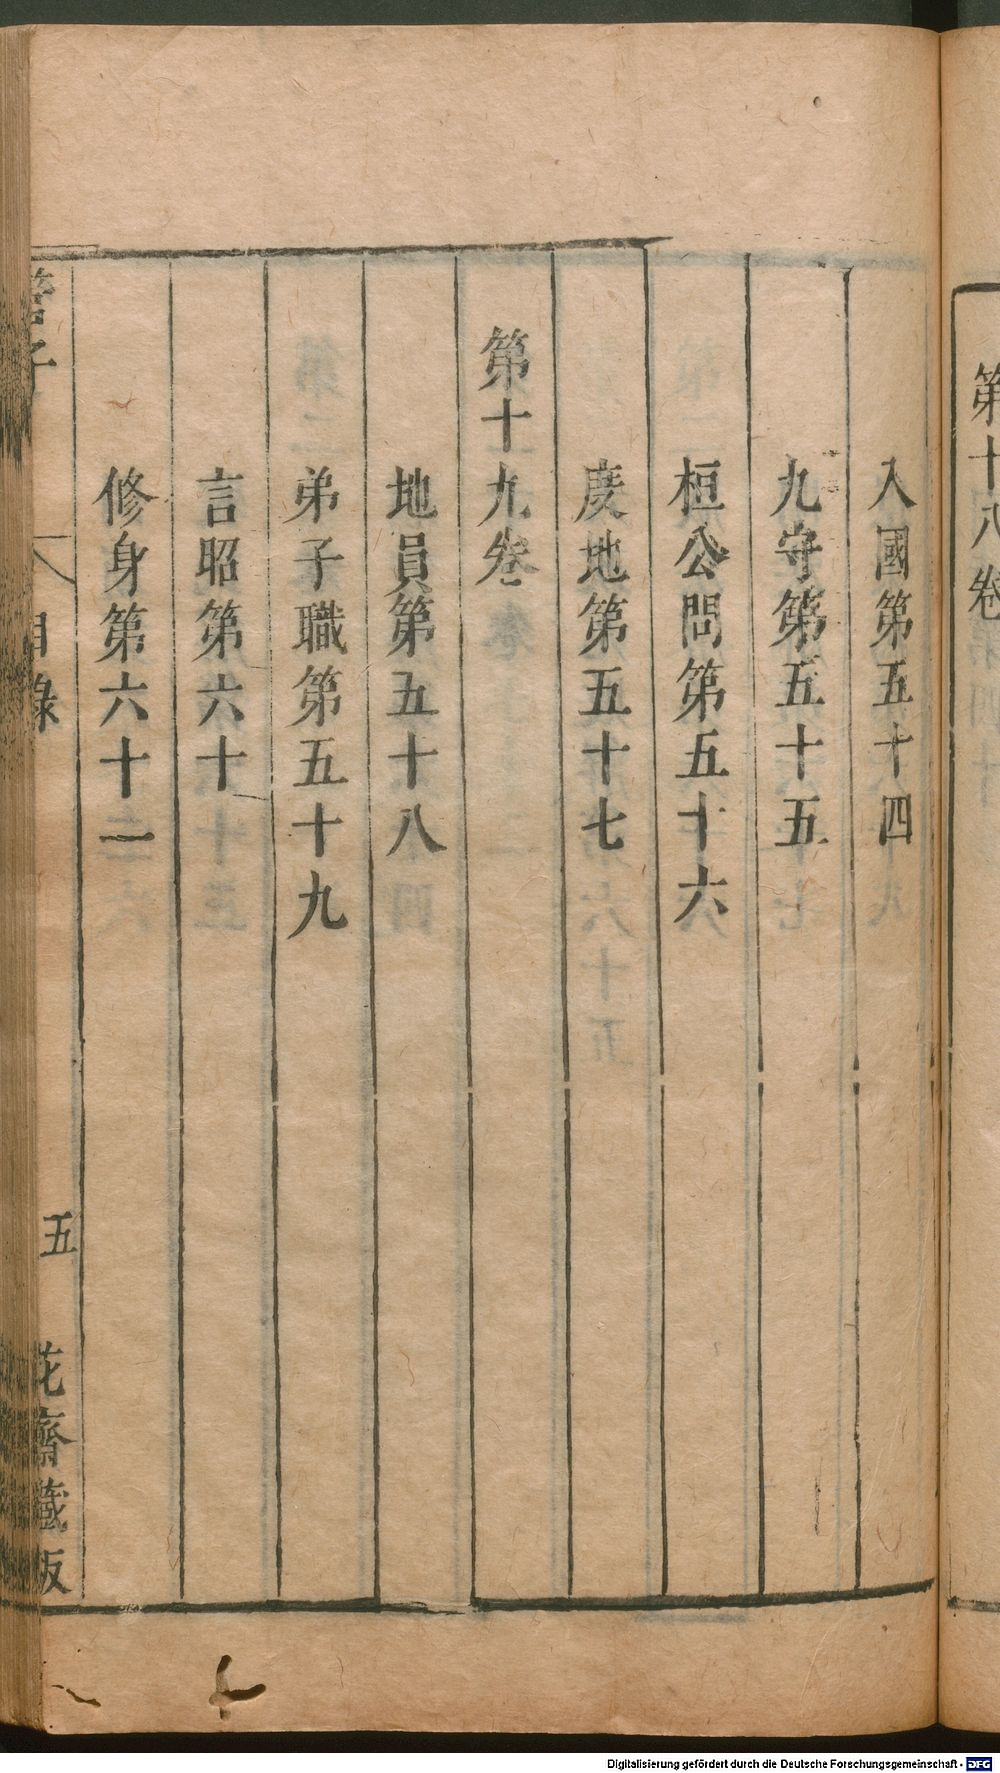 第十八卷
入國第五十四
九守第五十五
桓公問第五十六
度地第五十七
第十九卷
地員第五十八
弟子職第五十九
言昭第六十
修身第六十一
管子
目錄
五
花齋藏板
Digitalisierung gefördert durch die Deutsche Forschungsgemeinschaft - DFG